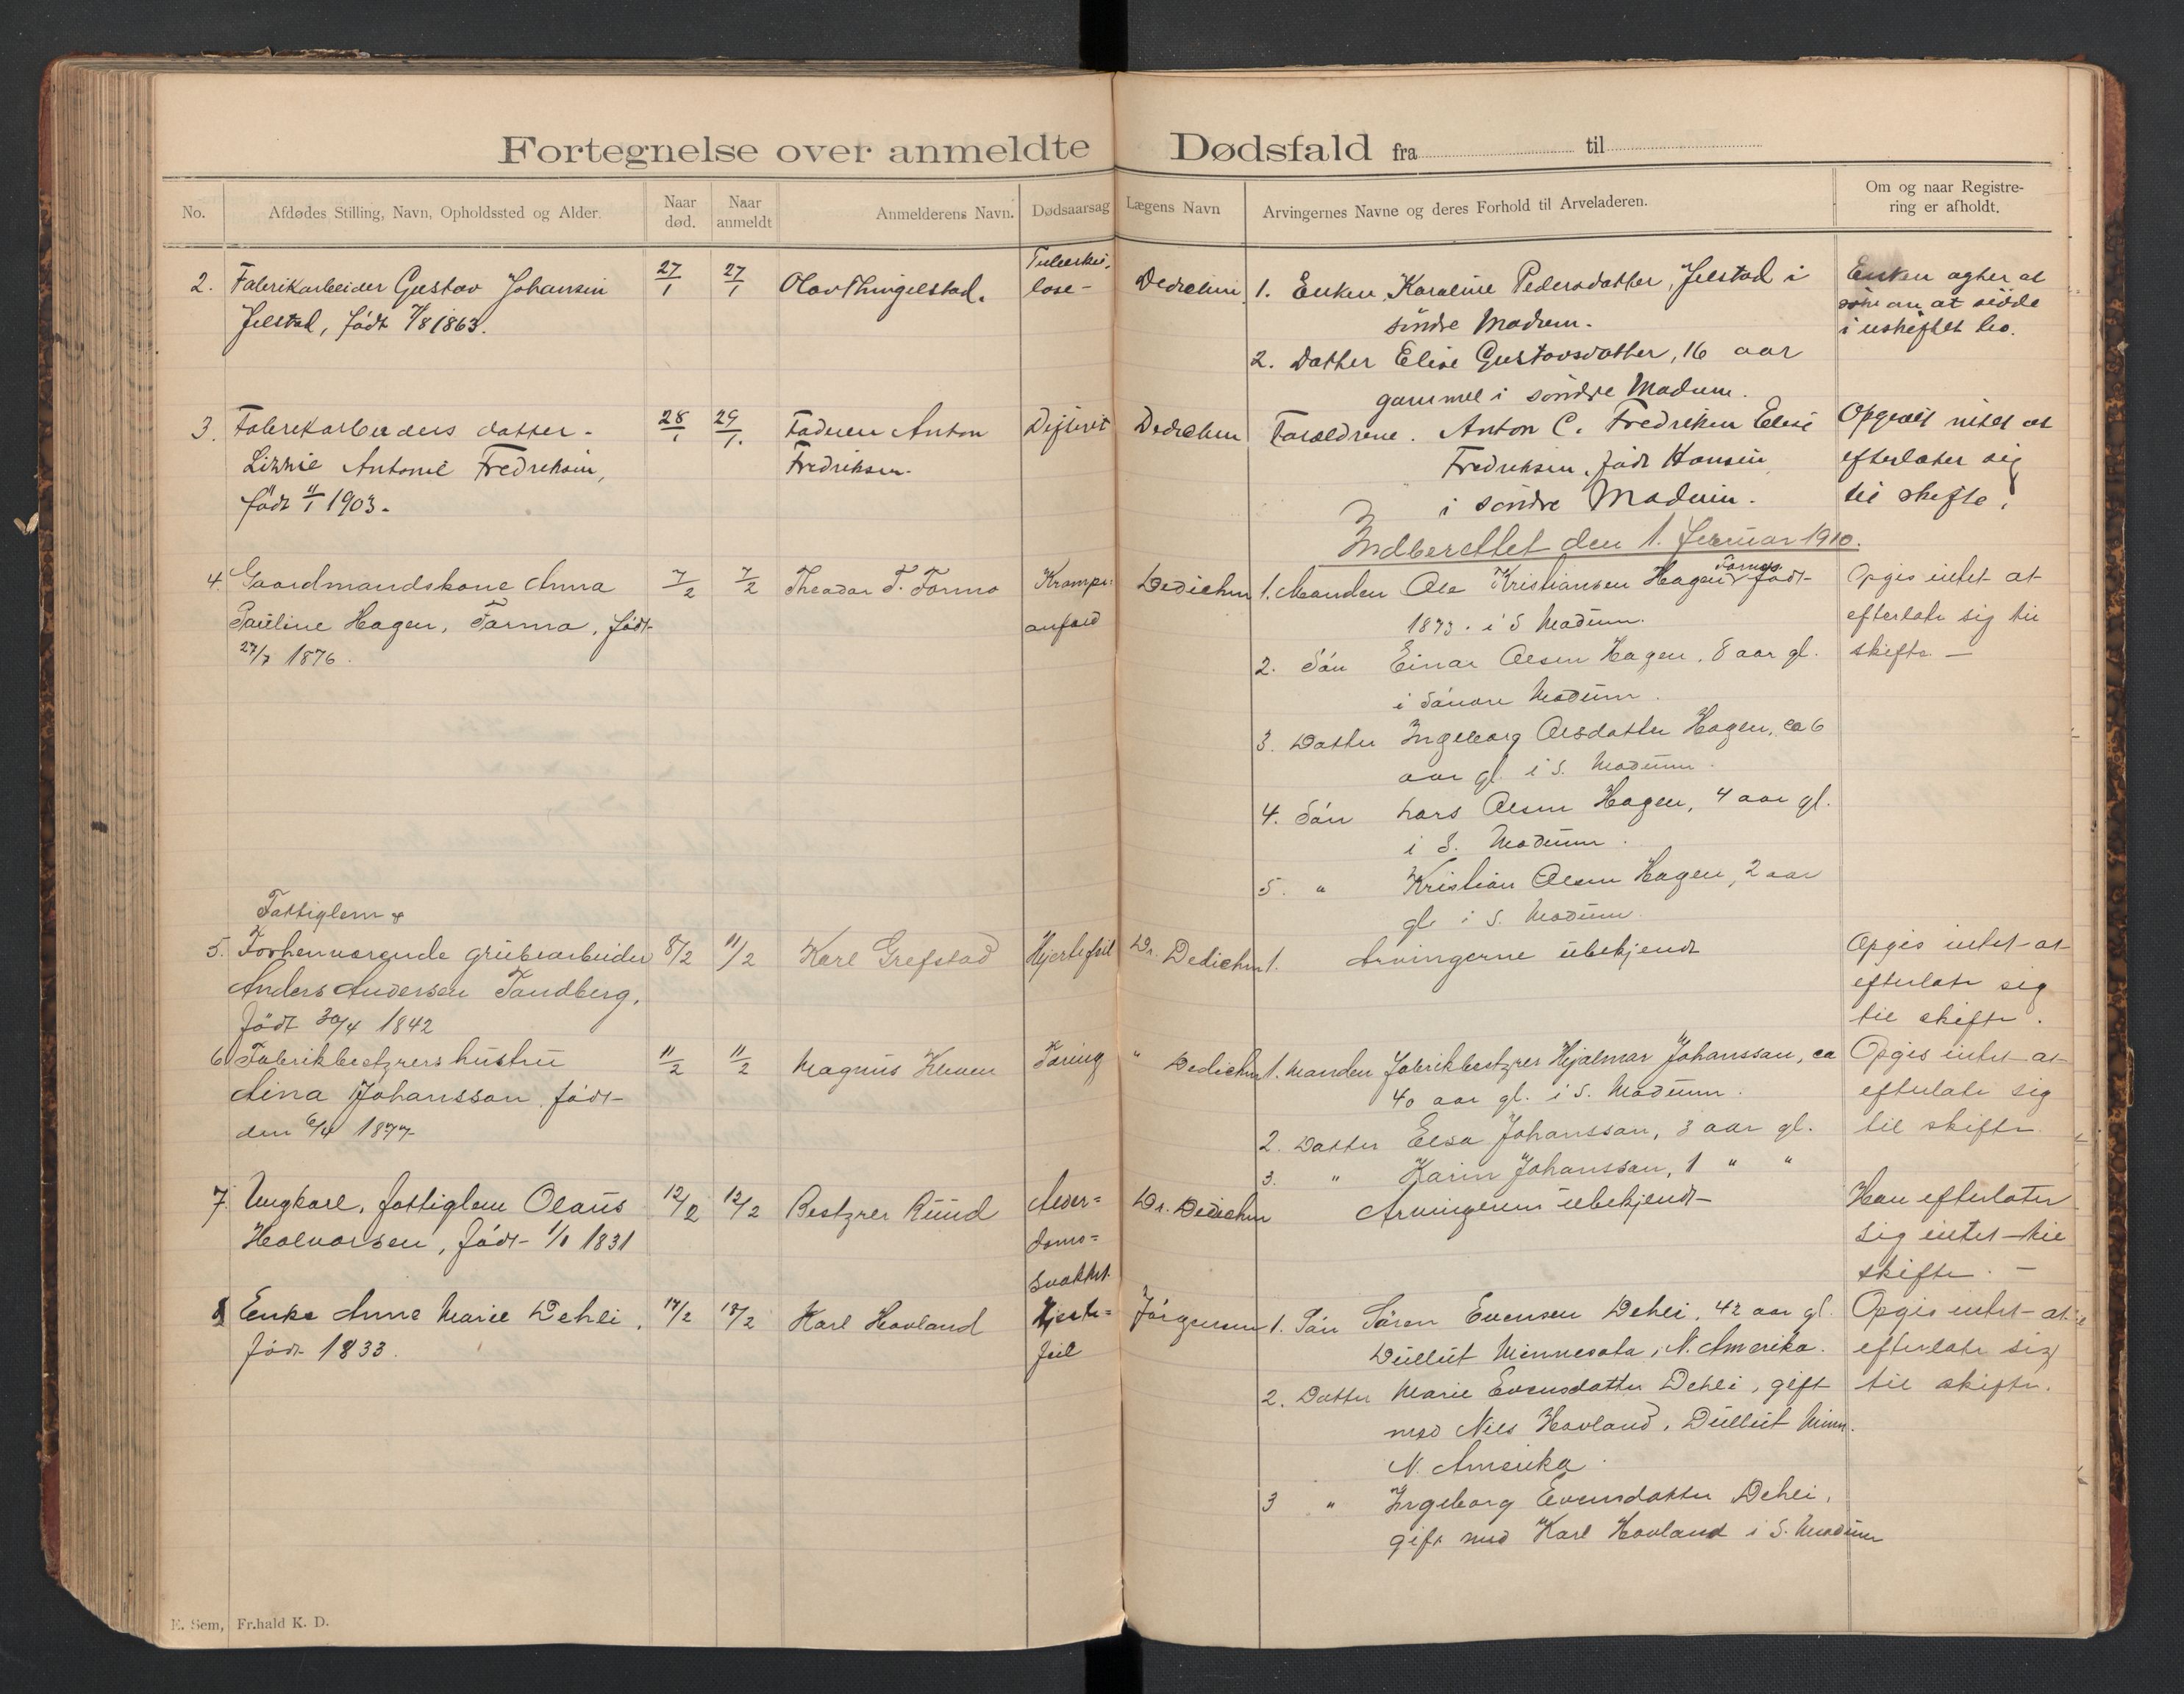 Fortegnelse over anmeldte Dødsfald fra til
No.
Afdødes Stilling, Navn, Opholdssted og Alder.
Naar død.
Naar anmeldt
Anmelderens Navn.
Dødsaarsag
Lægens Navn
Arvingernes Navne og deres Forhold til Arveladeren.
Om og naar Registre-
ring er afholdt.
2. Fabrikarbeider Gustav Johansen
Jelstad, født 7/8 1863.
27/1
27/1
Olav Thingelstad.
Tuberku-
lose-
Dedichen
1. Enken Karoline Pedersdatter, Jelstad i
søndre Modum.
2. Datter Elise Gustavsdatter, 16 aar
gammel i søndre Modum.
Enken agter at
sidde
i uskiftet bo.
3. Fabrikarbeiders datter-
Lizzie Antonie Fredriksen,
født 11/1 1903.
28/1
29/1.
Faderen Anton
Fredriksen.
Difterit
Dedichen
Forældrene. Anton C. Fredriksen Elise
Fredriksen, født Hansen
i søndre Modum.
Opgives intet at
efterlater sig
til skifte.
Indberettet den 1. februar 1910.
4. Gaardmandskone Anna
Pauline Hagen, Formo, født
27/7 1876.
7/2
7/2
Theodor T. Formo
Krampe-
anfald
Dedichen
1. Manden Ole Kristiansen Hagen Formo født
1873. i S Modum.
2. Søn Einar Olsen Hagen, 8 aar gl.
i Søndre Modum.
3. Datter Ingeborg Olsdatter Hagen, ca 6
aar gl. i S. Modum.
4. Søn Lars Olsen Hagen, 4 aar gl.
i S. Modum.
5. " Kristian Olsen Hagen, 2 aar
gl. i S. Modum.
Opgis intet at
efterlate sig til
skifte. —
Fattiglem &
5. Forhenværende grubearbeider
Anders Andersen Tandberg,
født 30/4 1842
8/2
11/2
Karl Grefstad
Hjertefeil
Dr. Dedichen
1. Arvingerne ubekjendt
Opgis intet at
efterlate sig
til skifte.
6. Fabrikbestyrers hustru
Aina Johansson, født
den 6/4 1877
11/2
11/2
Magnus Kleven
Tæring
" Dedichen
1. Manden fabrikbestyrer Hjalmar Johansson, ca
40 aar gl. i S. Modum.
2. Datter Elsa Johansson, 3 aar gl.
3. " Karin Johansson, 1 " "
Opgis intet at
efterlate sig
til skifte.
7. Ungkarl, fattiglem Olaus
Halvorsen, født 1831
12/2
12/2
Bestyrer Ruud
Alder=
doms=
svakhet.
Dr. Dedichen
Arvingerne ubekjendt
Han efterlater
sig intet til
skifte. —
8 Enke Anne Marie Dehli,
født 1833.
17/2
18/2
Karl Hovland
Hjerte=
feil
Jørgensen
1. Søn Søren Evensen Dehli, 42 aar gl.
Dullut Minnesota, N. Amerika.
2. Datter Marie Evensdatter Dehli, gift
med Nils Hovland, Dullut Minn.
N. Amerika.
3 " Ingeborg Evensdatter Dehli,
gift med Karl Hovland i S. Modum
Opgis intet at
efterlate sig
til skifte.
E. Sem, Fr.hald K. D.